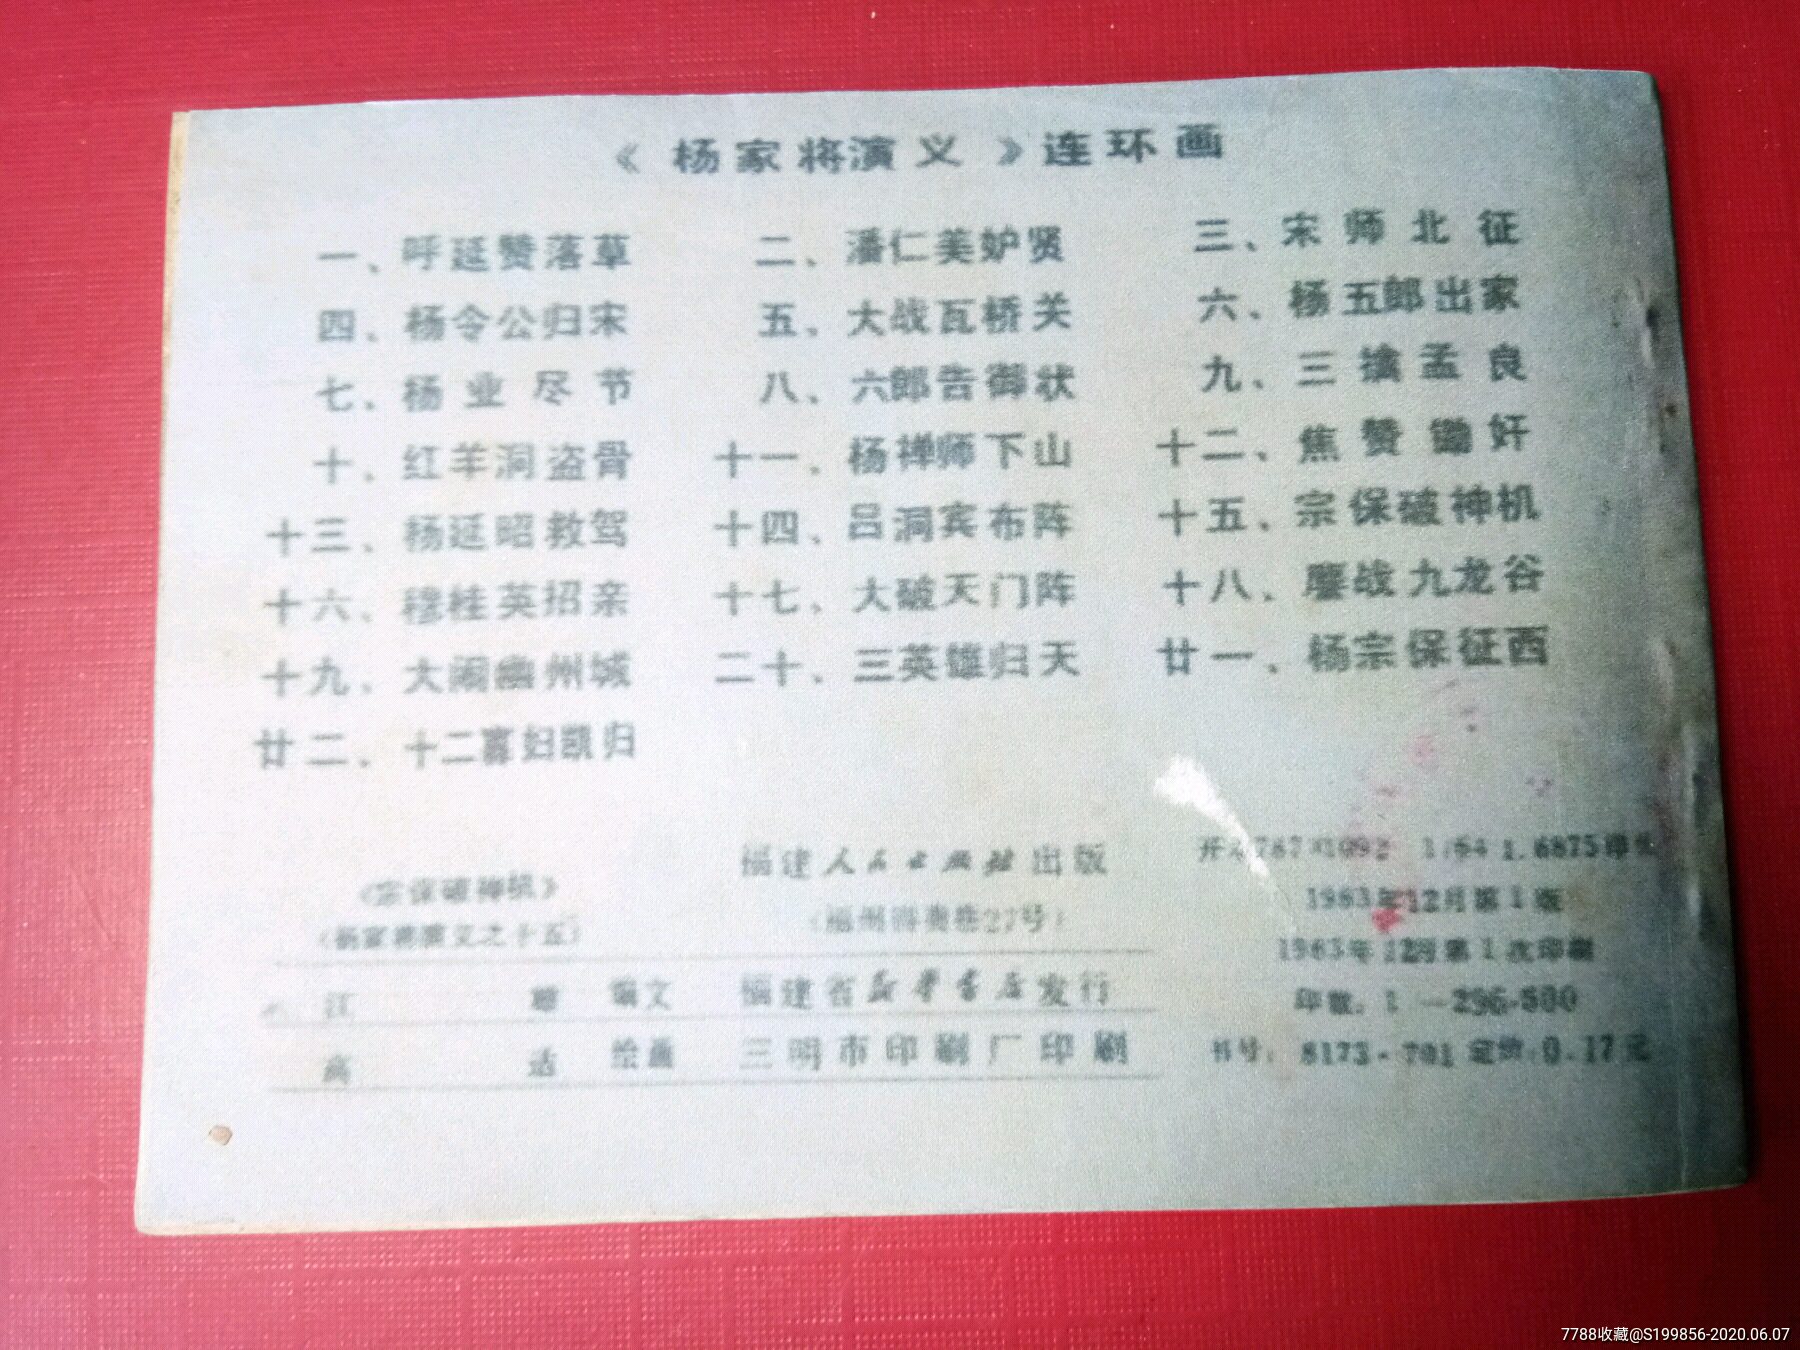 《杨家将演义》连环画
一、呼延赞落草 二、潘仁美妒贤 三、宋师北征
四、杨令公归宋 五、大战瓦桥关 六、杨五郎出家
七、杨业尽节 八、六郎告御状 九、三擒孟良
十、红羊洞盗骨 十一、杨禅师下山 十二、焦赞锄奸
十三、杨延昭救驾 十四、吕洞宾布阵 十五、宗保破神机
十六、穆桂英招亲 十七、大破天门阵 十八、鏖战九龙谷
十九、大闹幽州城 二十、三英雄归天 廿一、杨宗保征西
廿二、十二寡妇凯归
《宗保破神机》
(杨家将演义之十五)
江 编文
高 适 绘画
福建人民出版社出版
(福州得贵巷27号)
福建省新华书店发行
三明市印刷厂印刷
787×1092 1/64 1.6875
1983年12月第1版
1983年12月第1次印刷
印数：1—296,500
书号：8173·701 定价：0.17元
7788收藏@S199856-2020.06.07